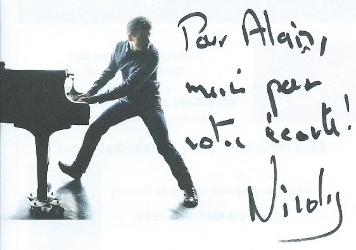 Pour Alain,
merci pour
votre écoute!
Nicolas